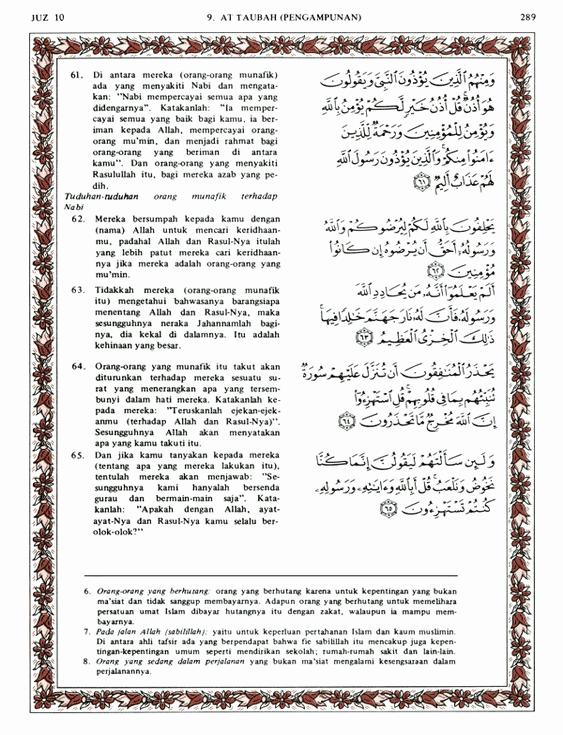 JUZ 10
9. AT TAUBAH (PENGAMPUNAN)
289
61. Di antara mereka (orang-orang munafik)
ada yang menyakiti Nabi dan mengata-
kan: "Nabi mempercayai semua apa yang
didengarnya". Katakanlah: "Ia memper-
cayai semua yang baik bagi kamu, ia ber-
iman kepada Allah, mempercayai orang-
orang mu'min, dan menjadi rahmat bagi
orang-orang yang beriman di antara
kamu". Dan orang-orang yang menyakiti
Rasulullah itu, bagi mereka azab yang pe-
dih.
Tuduhan-tuduhan orang munafik terhadap
Nabi
62. Mereka bersumpah kepada kamu dengan
(nama) Allah untuk mencari keridhaan-
mu, padahal Allah dan Rasul-Nya itulah
yang lebih patut mereka cari keridhaan-
nya jika mereka adalah orang-orang yang
mu'min.
63. Tidakkah mereka (orang-orang munafik
itu) mengetahui bahwasanya barangsiapa
menentang Allah dan Rasul-Nya, maka
sesungguhnya neraka Jahannamlah bagi-
nya, dia kekal di dalamnya. Itu adalah
kehinaan yang besar.
64. Orang-orang yang munafik itu takut akan
diturunkan terhadap mereka sesuatu su-
rat yang menerangkan apa yang tersem-
bunyi dalam hati mereka. Katakanlah ke-
pada mereka: "Teruskanlah ejekan-ejek-
anmu (terhadap Allah dan Rasul-Nya)".
Sesungguhnya Allah akan menyatakan
apa yang kamu takuti itu.
65. Dan jika kamu tanyakan kepada mereka
(tentang apa yang mereka lakukan itu),
tentulah mereka akan menjawab: "Se-
sungguhnya kami hanyalah bersenda
gurau dan bermain-main saja". Kata-
kanlah: "Apakah dengan Allah, ayat-
ayat-Nya dan Rasul-Nya kamu selalu ber-
olok-olok?"
وَمِنْهُمُ ٱلَّذِينَ يُؤْذُونَ ٱلنَّبِىَّ وَيَقُولُونَ
هُوَ أُذُنٌ قُلْ أُذُنُ خَيْرٍ لَّكُمْ يُؤْمِنُ بِٱللَّهِ
وَيُؤْمِنُ لِلْمُؤْمِنِينَ وَرَحْمَةٌ لِّلَّذِينَ
ءَامَنُوا۟ مِنكُمْ وَٱلَّذِينَ يُؤْذُونَ رَسُولَ ٱللَّهِ
لَهُمْ عَذَابٌ أَلِيمٌ ٦١
يَحْلِفُونَ بِٱللَّهِ لَكُمْ لِيُرْضُوكُمْ وَٱللَّهُ
وَرَسُولُهُۥٓ أَحَقُّ أَن يُرْضُوهُ إِن كَانُوا۟
مُؤْمِنِينَ ٦٢
أَلَمْ يَعْلَمُوٓا۟ أَنَّهُۥ مَن يُحَادِدِ ٱللَّهَ
وَرَسُولَهُۥ فَأَنَّ لَهُۥ نَارَ جَهَنَّمَ خَٰلِدًا فِيهَا
ذَٰلِكَ ٱلْخِزْىُ ٱلْعَظِيمُ ٦٣
يَحْذَرُ ٱلْمُنَٰفِقُونَ أَن تُنَزَّلَ عَلَيْهِمْ سُورَةٌ
تُنَبِّئُهُم بِمَا فِى قُلُوبِهِمْ قُلِ ٱسْتَهْزِءُوٓا۟
إِنَّ ٱللَّهَ مُخْرِجٌ مَّا تَحْذَرُونَ ٦٤
وَلَئِن سَأَلْتَهُمْ لَيَقُولُنَّ إِنَّمَا كُنَّا
نَخُوضُ وَنَلْعَبُ قُلْ أَبِٱللَّهِ وَءَايَٰتِهِۦ وَرَسُولِهِۦ
كُنتُمْ تَسْتَهْزِءُونَ ٦٥
6. Orang-orang yang berhutang: orang yang berhutang karena untuk kepentingan yang bukan
ma'siat dan tidak sanggup membayarnya. Adapun orang yang berhutang untuk memelihara
persatuan umat Islam dibayar hutangnya itu dengan zakat, walaupun ia mampu mem-
bayarnya.
7. Pada jalan Allah (sabilillah): yaitu untuk keperluan pertahanan Islam dan kaum muslimin.
Di antara ahli tafsir ada yang berpendapat bahwa fie sabilillah itu mencakup juga kepen-
tingan-kepentingan umum seperti mendirikan sekolah; rumah-rumah sakit dan lain-lain.
8. Orang yang sedang dalam perjalanan yang bukan ma'siat mengalami kesengsaraan dalam
perjalanannya.